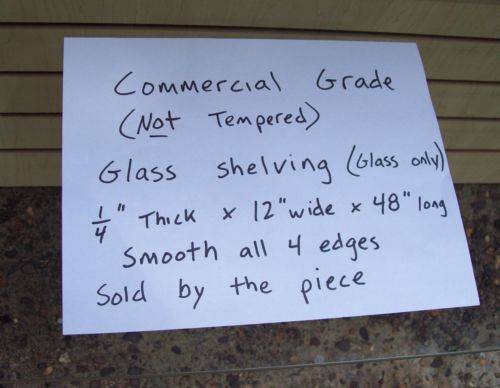 Commercial Grade
(Not Tempered)
Glass shelving (Glass only)
1/4" Thick x 12" wide x 48" long
Smooth all 4 edges
Sold by the piece